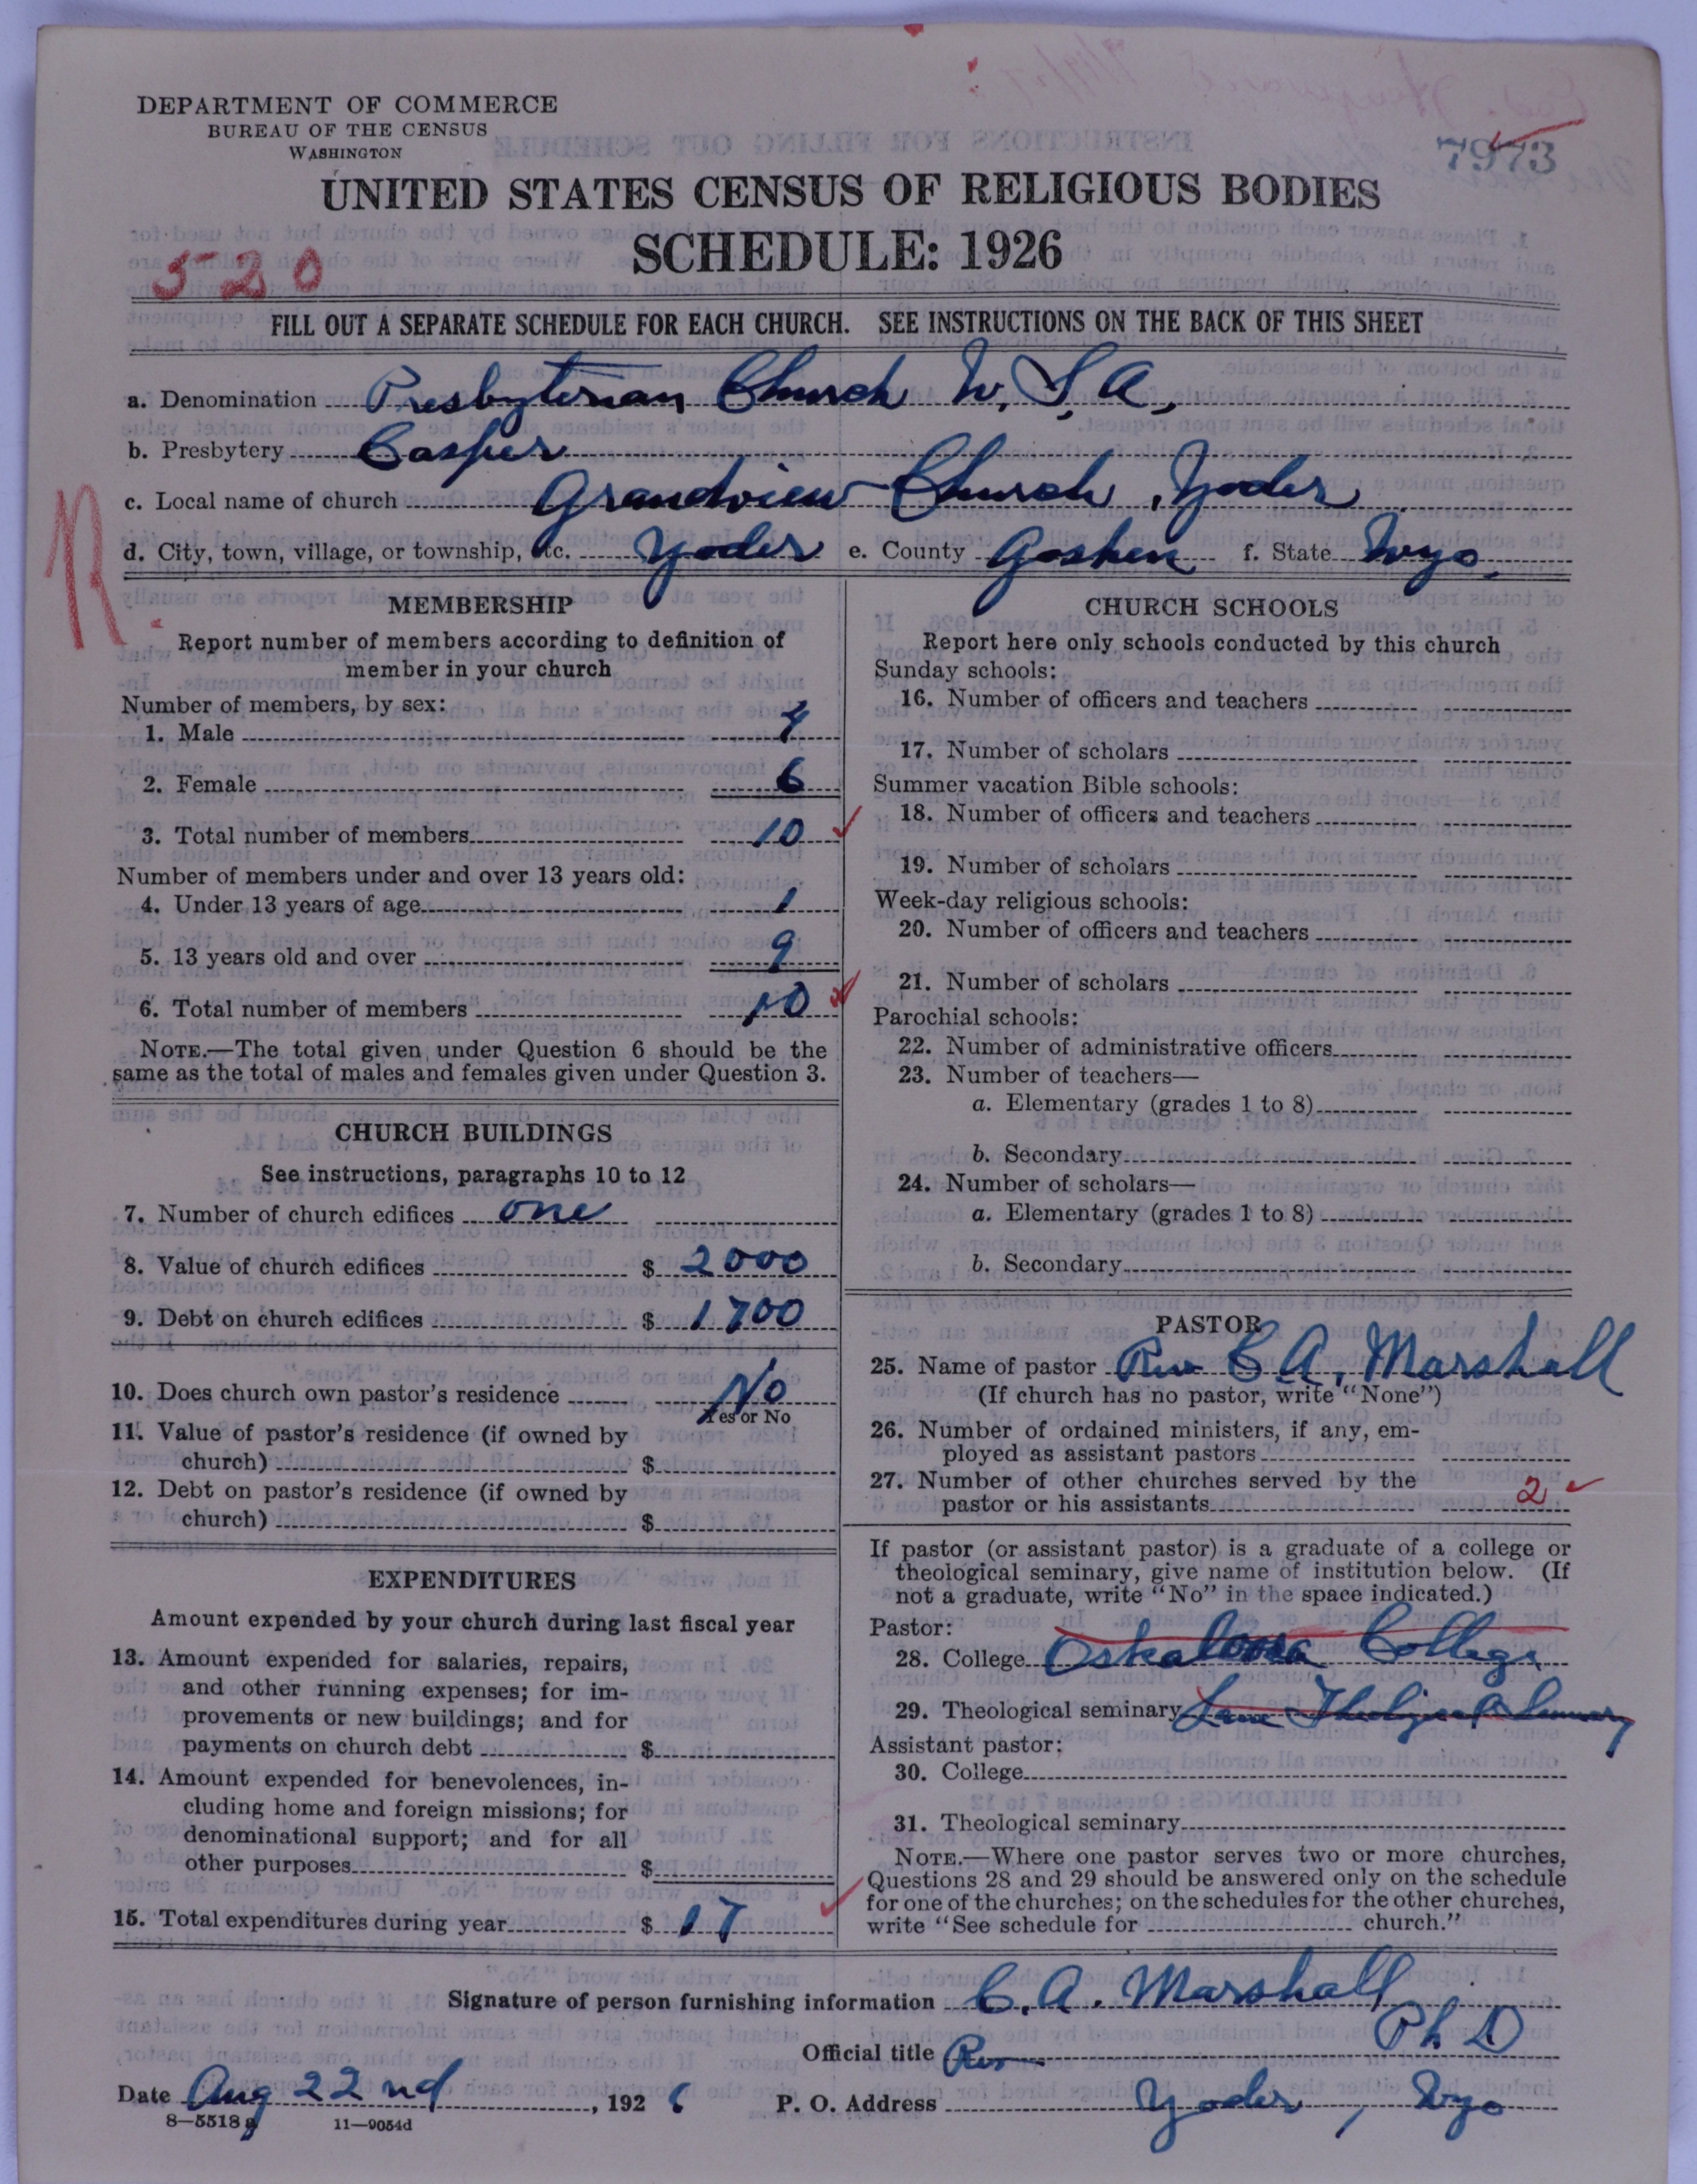 DEPARTMENT OF COMMERCE
BUREAU OF THE CENSUS
WASHINGTON
7973
UNITED STATES CENSUS OF RELIGIOUS BODIES
SCHEDULE: 1926
520
FILL OUT A SEPARATE SCHEDULE FOR EACH CHURCH. SEE INSTRUCTIONS ON THE BACK OF THIS SHEET
a. Denomination Presbyterian Church U. S. A.
b. Presbytery Casper
c. Local name of church Grandview Church, Yoder
d. City, town, village, or township, etc. Yoder e. County Goshen f. State Wyo.
R
MEMBERSHIP
Report number of members according to definition of
member in your church
Number of members, by sex:
1. Male 4
2. Female 6
3. Total number of members 10
Number of members under and over 13 years old:
4. Under 13 years of age 1
5. 13 years old and over 9
6. Total number of members 10
NOTE.—The total given under Question 6 should be the
same as the total of males and females given under Question 3.
CHURCH BUILDINGS
See instructions, paragraphs 10 to 12
7. Number of church edifices one
8. Value of church edifices $ 2000
9. Debt on church edifices $ 1700
10. Does church own pastor's residence No
Yes or No
11. Value of pastor's residence (if owned by
church) $
12. Debt on pastor's residence (if owned by
church) $
EXPENDITURES
Amount expended by your church during last fiscal year
13. Amount expended for salaries, repairs,
and other running expenses; for im-
provements or new buildings; and for
payments on church debt $
14. Amount expended for benevolences, in-
cluding home and foreign missions; for
denominational support; and for all
other purposes $
15. Total expenditures during year $ 17
CHURCH SCHOOLS
Report here only schools conducted by this church
Sunday schools:
16. Number of officers and teachers
17. Number of scholars
Summer vacation Bible schools:
18. Number of officers and teachers
19. Number of scholars
Week-day religious schools:
20. Number of officers and teachers
21. Number of scholars
Parochial schools:
22. Number of administrative officers
23. Number of teachers—
a. Elementary (grades 1 to 8)
b. Secondary
24. Number of scholars—
a. Elementary (grades 1 to 8)
b. Secondary
PASTOR
25. Name of pastor Rev C A. Marshall
(If church has no pastor, write "None")
26. Number of ordained ministers, if any, em-
ployed as assistant pastors
27. Number of other churches served by the
pastor or his assistants 2
If pastor (or assistant pastor) is a graduate of a college or
theological seminary, give name of institution below. (If
not a graduate, write "No" in the space indicated.)
Pastor:
28. College Oskaloosa College
29. Theological seminary Lane Theological Seminary
Assistant pastor:
30. College
31. Theological seminary
NOTE.—Where one pastor serves two or more churches,
Questions 28 and 29 should be answered only on the schedule
for one of the churches; on the schedules for the other churches,
write "See schedule for church."
Signature of person furnishing information C. A. Marshall
Official title Rev Ph D
Date Aug 22nd, 1926 P. O. Address Yoder, Wyo
8—5518g 11—9054d